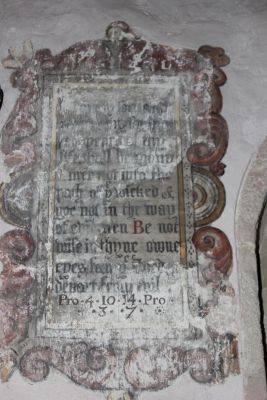 years of thy
life shall be many
Enter not into the
path of yᵉ wicked &
goe not in the way
of evil men Be not
wise in thyne owne
eyes fear yᵉ Lord &
depart from evil
Pro • 4 • 10 • 14 • Pro
• 3 • 7 •